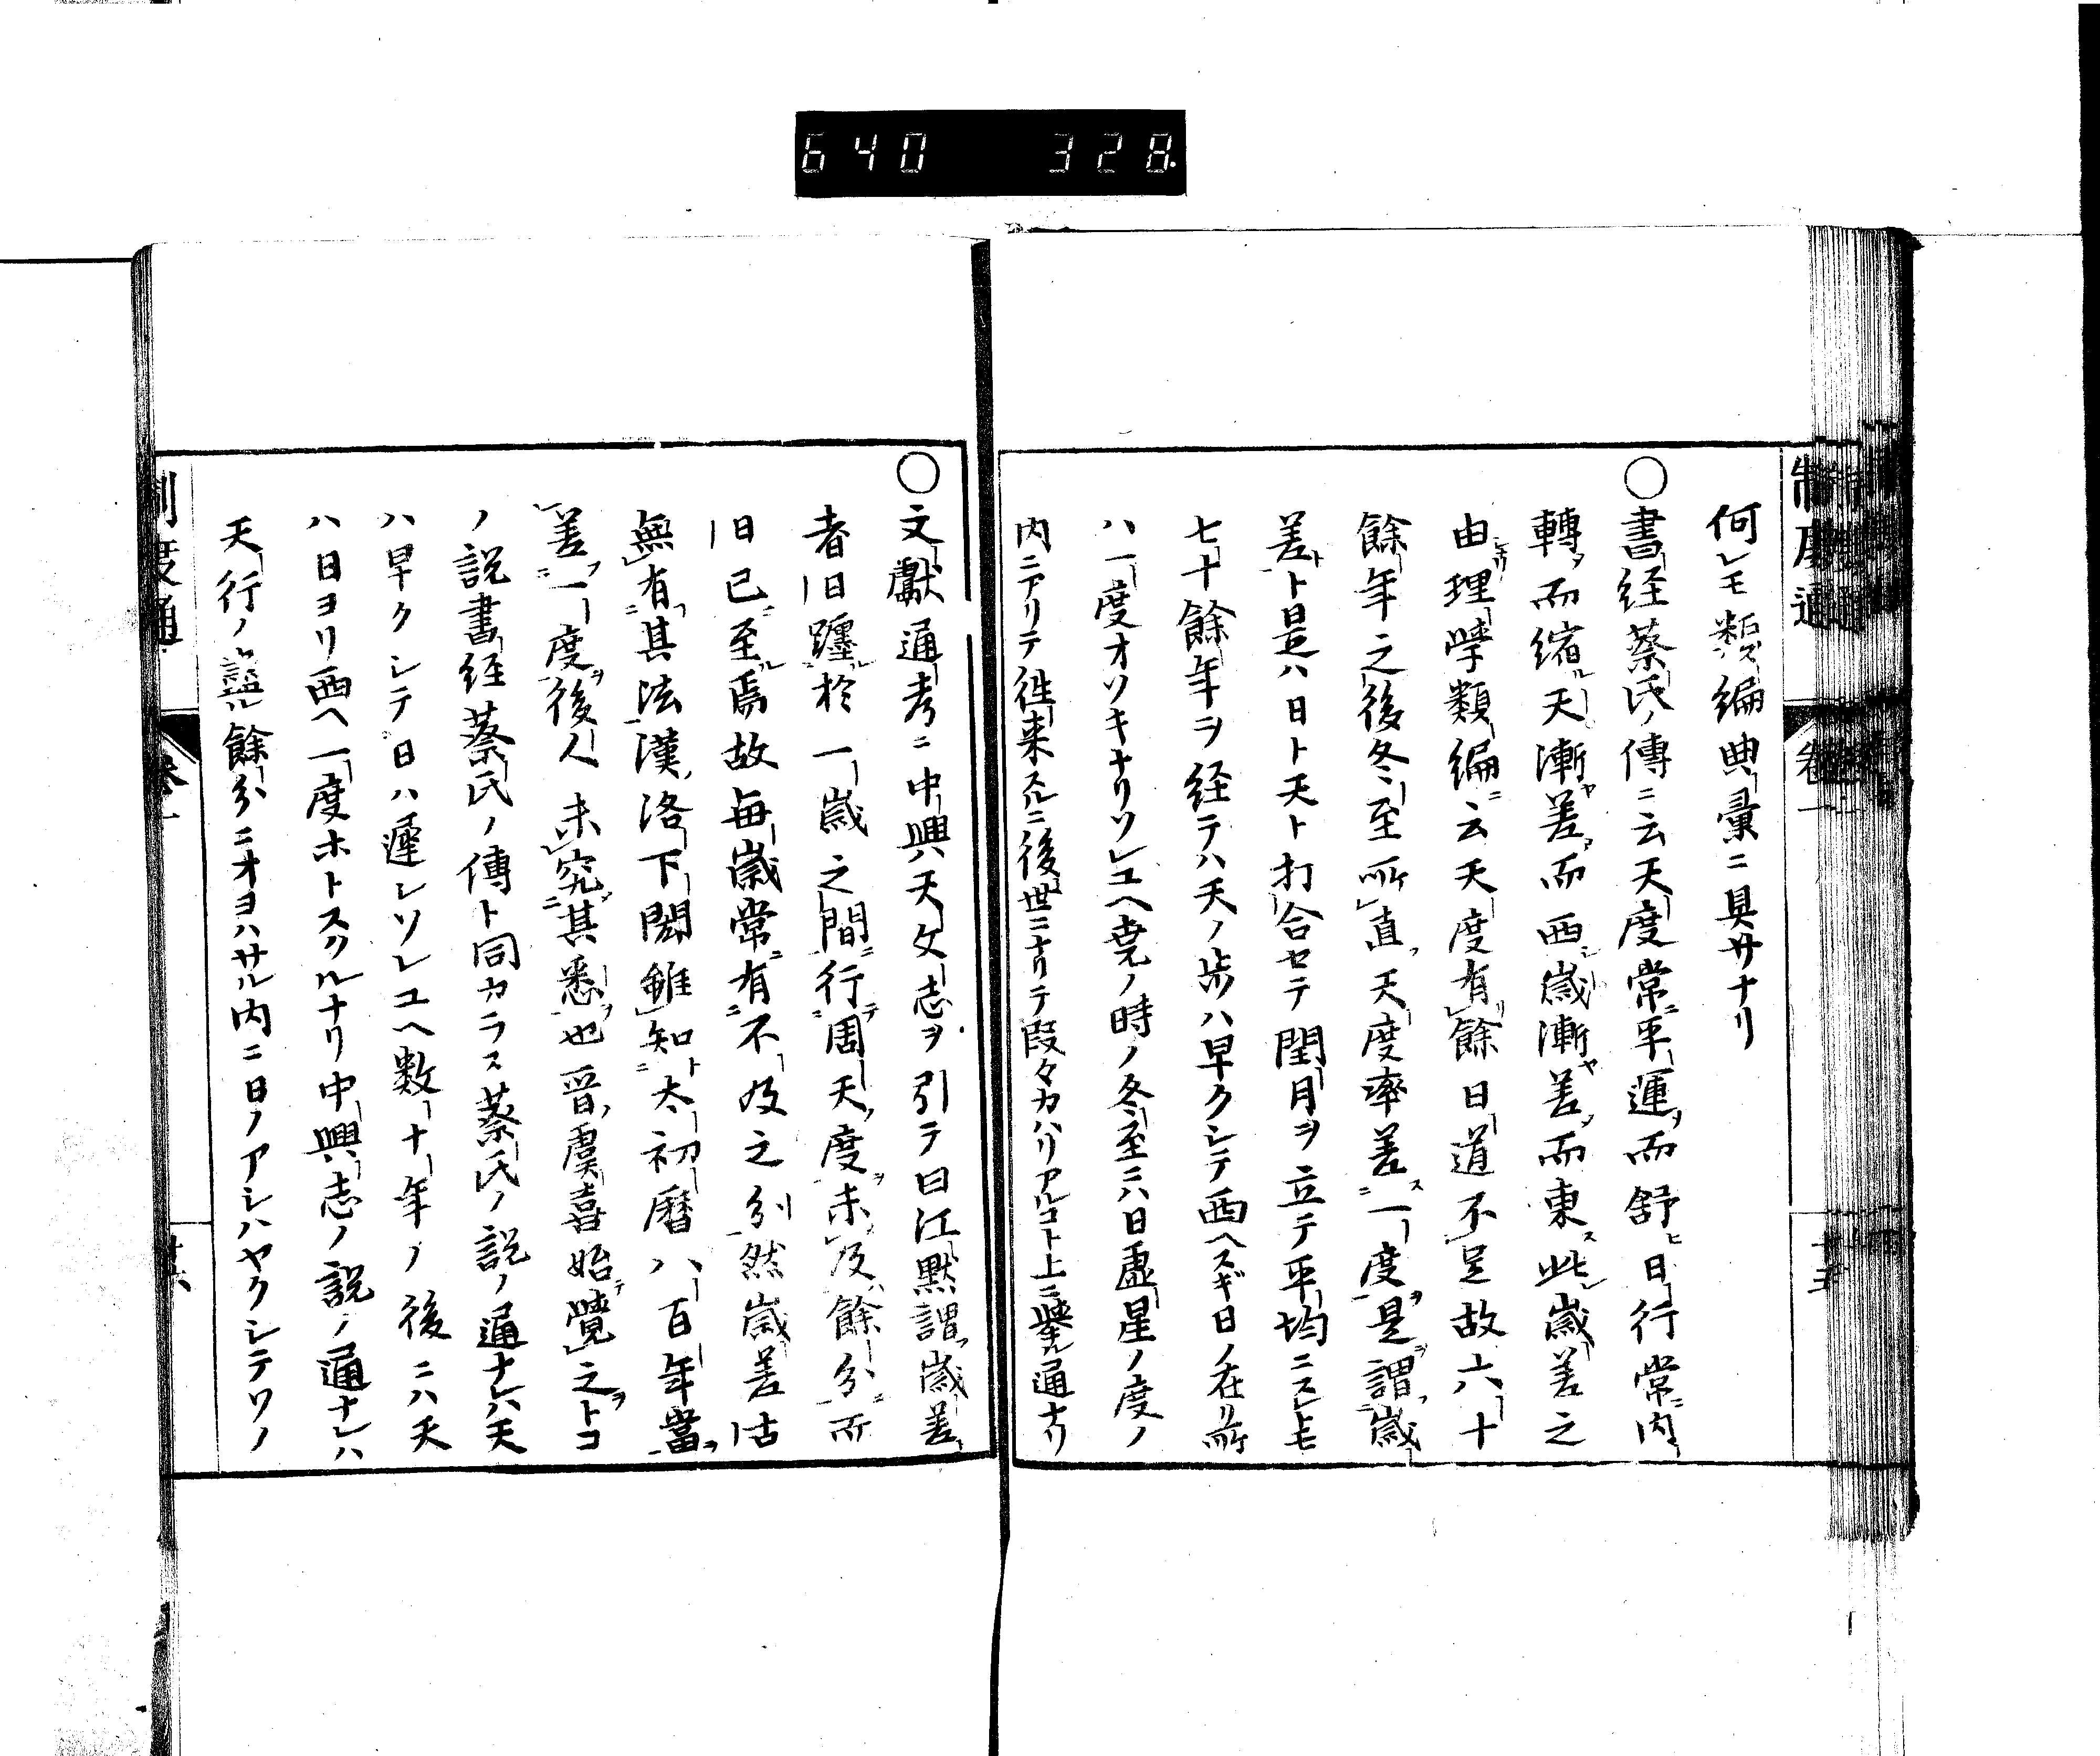 640 328
制度通 卷一 十五
何レモ類編典彙ニ具サナリ
○書経蔡氏ノ傳ニ云天度常平運而舒日行常内
轉而縮天漸差而西歳漸差而東此歳差之
由理學類編云天度有餘日道不足故六十
餘年之後冬至所直天度率差一度是謂歳
差ト是ハ日ト天ト打合セテ閏月ヲ立テ平均ニスレトモ
七十餘年ヲ経テハ天ノ歩ハ早クシテ西ヘスギ日ノ在リ所
ハ一度オソキナリソレユヘ堯ノ時ノ冬至ニハ日虚星ノ度ノ
内ニアリテ徃来スルニ後世ニナリテ段々カハリアルコト上ニ挙ル通ナリ
○文獻通考ニ中興天文志ヲ引テ曰江黙謂歳差
者日躔於一歳之間行周天度未及餘分而
日已至焉故毎歳常有不及之分然歳差古
無有其法漢洛下閎雖知太初暦八百年當
差一度後人未究其悉也晋虞喜始覺之トコ
ノ説書経蔡氏ノ傳ト同カラス蔡氏ノ説ノ通ナレハ天
ハ早クシテ日ハ遲レソレユヘ数十年ノ後ニハ天
ハ日ヨリ西ヘ一度ホトスクルナリ中興志ノ説ノ通ナレハ
天行ノ餘分ニオヨハサル内ニ日ノアシハヤクシテソノ
制度通 卷一 十六